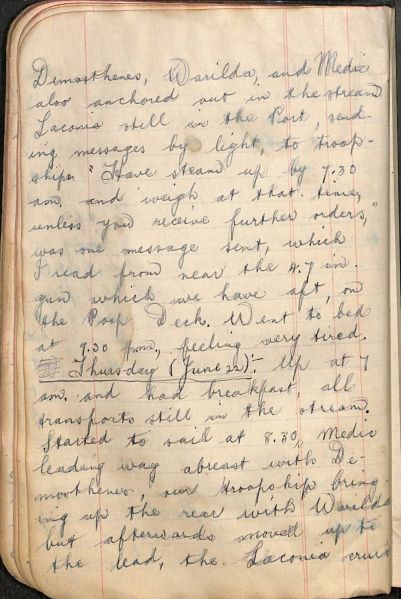 Demosthenes, Warilda, and Medic
also anchored out in the stream
Laconia still in the Port, send-
ing messages by light, to troop-
ships. "Have steam up by 7.30
am, and weigh at that time,
unless you receive further orders,"
was one message sent, which
I read from near the 4.7 in.
gun which we have aft, on
the Poop Deck. Went to bed
at 9.30 p.m., feeling very tired.
Thursday (June 22):- Up at 7
am. and had breakfast, all
transports still in the stream.
Started to sail at 8.30, Medic
leading way abreast with De-
mosthenes, our troopship bring-
ing up the rear with Warilda
but afterwards moved up to
the lead, the Laconia cruis